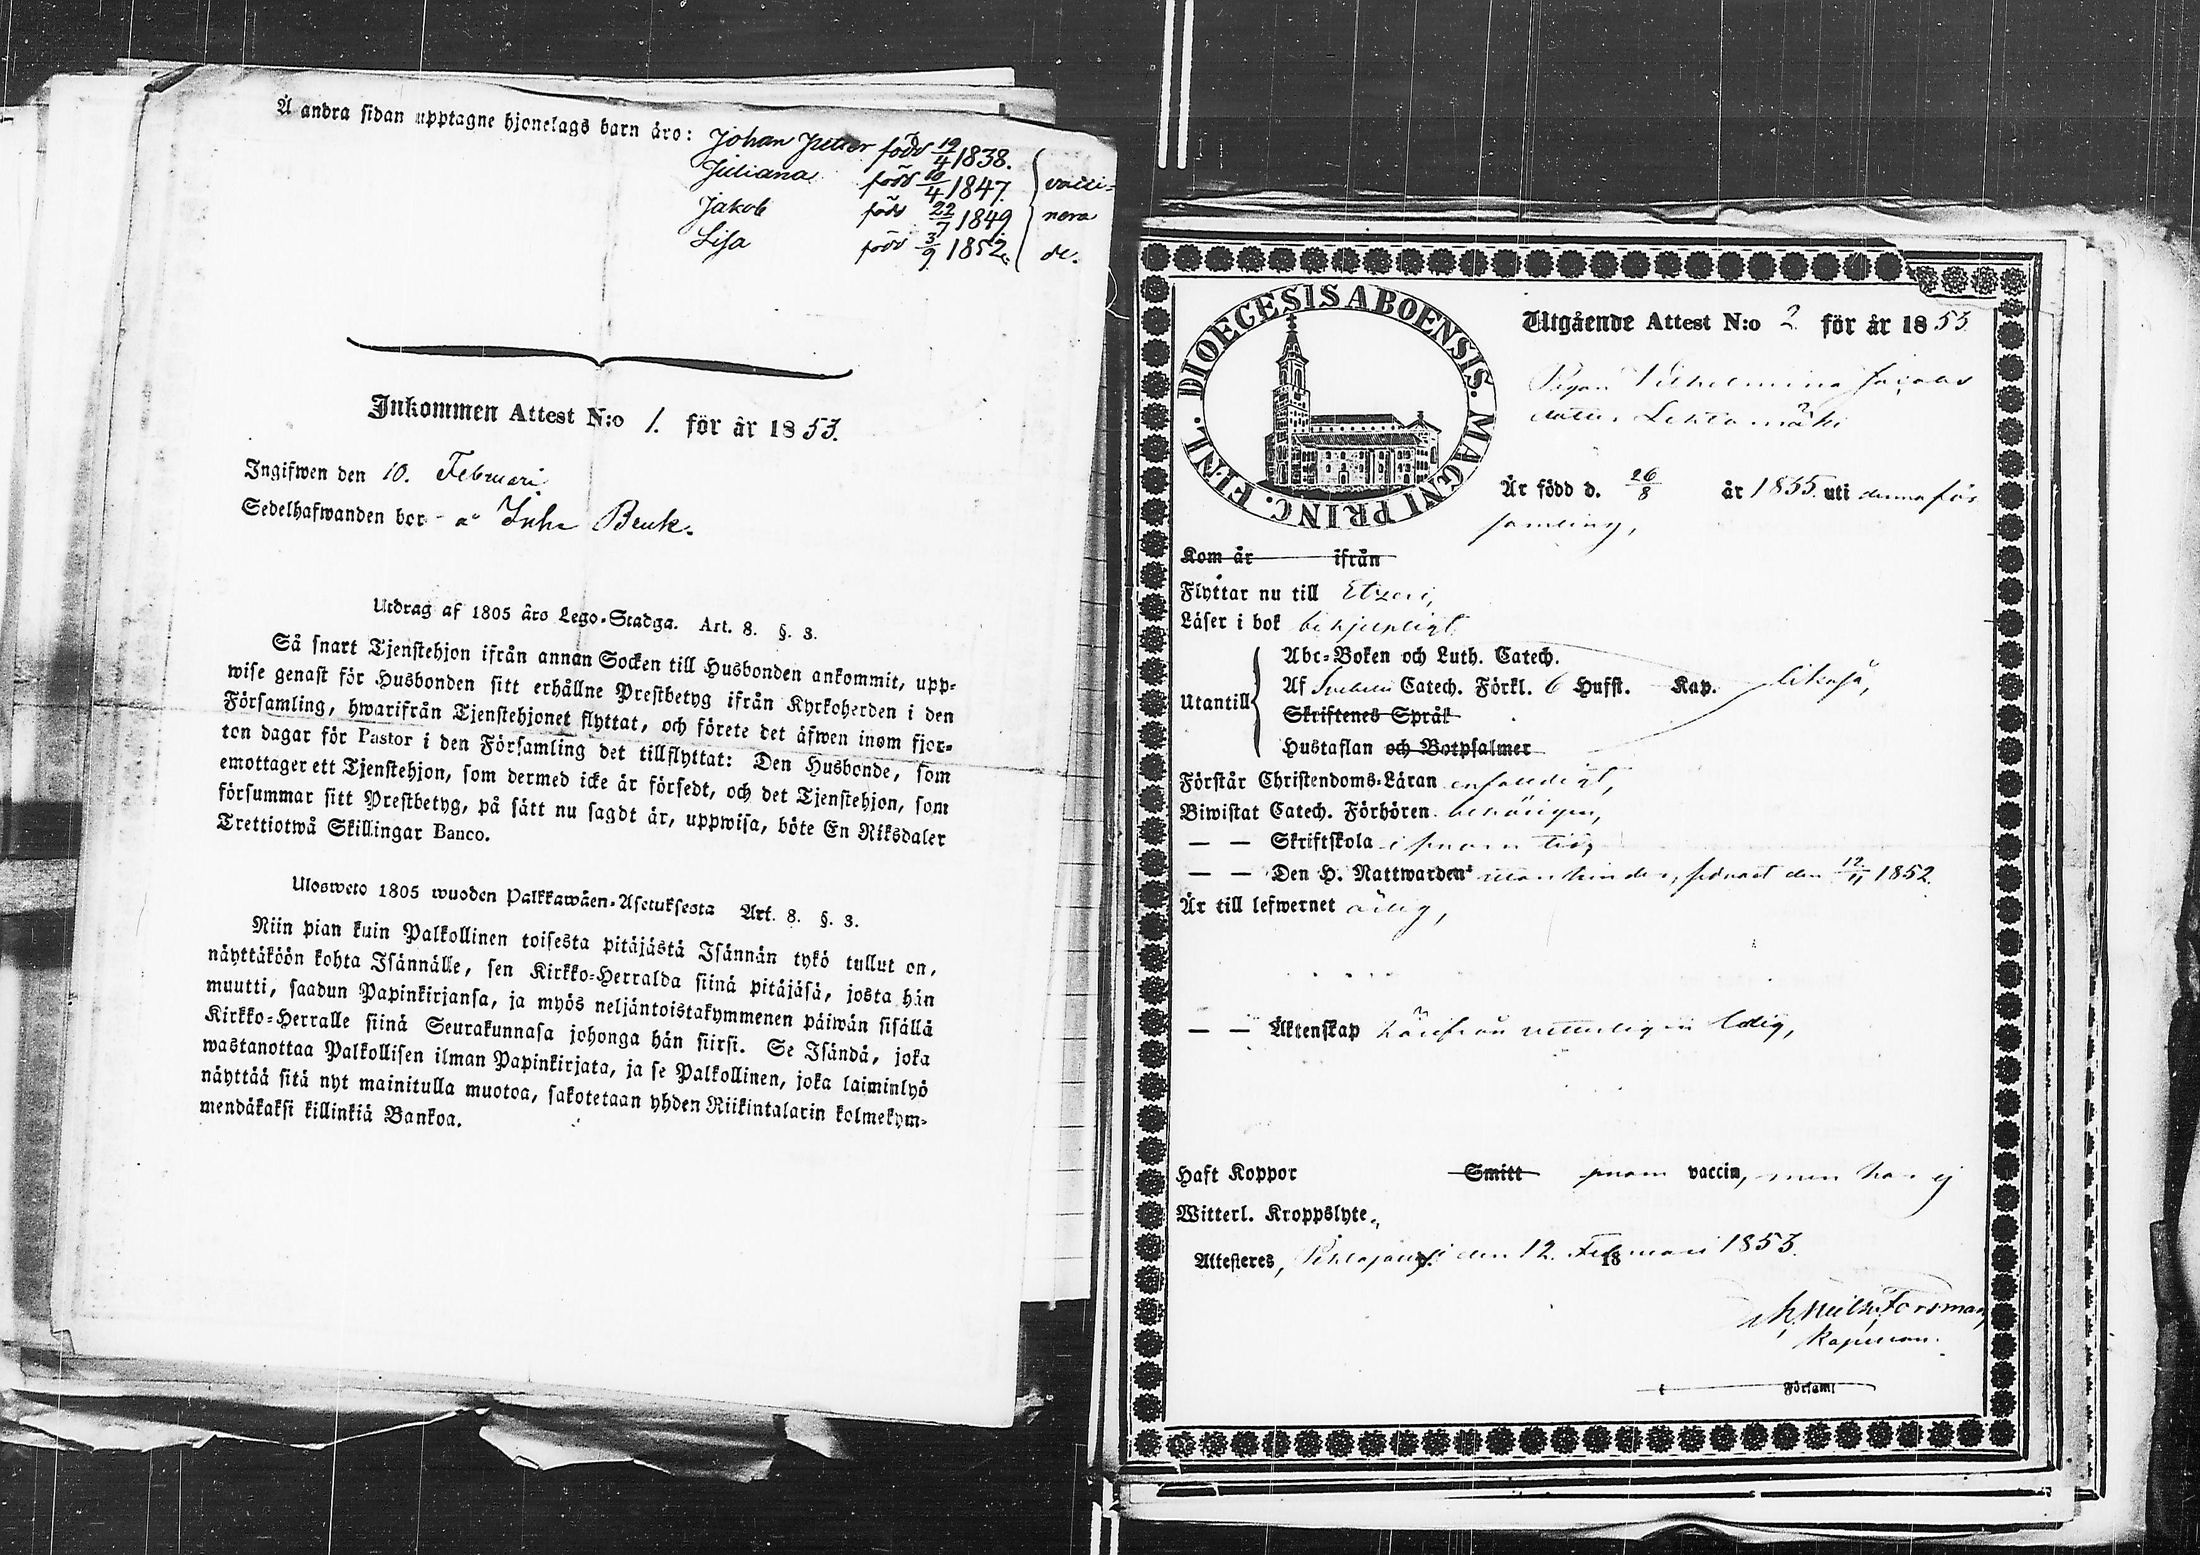 Å andra sidan upptagne hjonelags barn äro:
Johan Petter född 19/4 1838.
Juliana född 10/4 1847.
Jakob född 22/7 1849
Lisa född 3/9 1852.
vacci-
nera
de.
Inkommen Attest N:o 1. för år 1853.
Ingifwen den 10. Februari
Sedelhafwanden bor å Inha Bruk.
Utdrag af 1805 års Lego-Stadga. Art. 8. §. 3.
Så snart Tjenstehjon ifrån annan Socken till Husbonden ankommit, upp-
wise genast för Husbonden sitt erhållne Prestbetyg ifrån Kyrkoherden i den
Församling, hwarifrån Tjenstehjonet flyttat, och förete det äfwen inom fjor-
ton dagar för Pastor i den Församling det tillflyttat: Den Husbonde, som
emottager ett Tjenstehjon, som dermed icke är försedt, och det Tjenstehjon, som
försummar sitt Prestbetyg, på sätt nu sagdt är, uppwisa, böte En Riksdaler
Trettiotwå Skillingar Banco.
Ulosweto 1805 wuoden Palkkawäen-Asetuksesta Art. 8. §. 3.
Niin pian kuin Palkollinen toisesta pitäjästä Isännän tykö tullut on,
näyttäköön kohta Isännälle, sen Kirkko-Herralda siinä pitäjäsä, josta hän
muutti, saadun Papinkirjansa, ja myös neljäntoistakymmenen päiwän sisällä
Kirkko-Herralle siinä Seurakunnasa johonga hän siirsi. Se Isändä, joka
wastanottaa Palkollisen ilman Papinkirjata, ja se Palkollinen, joka laiminlyö
näyttää sitä nyt mainitulla muotoa, sakotetaan yhden Riikintalarin kolmekym-
mendäkaksi killinkiä Bankoa.
DIOECESIS ABOENSIS. MAGNI PRINC. FINL.
Utgående Attest N:o 2 för år 1853
Pigan Vilhelmina Jacobs
dotter Lehtomäki
Är född d. 26/8 år 1835 uti denna för
samling,
Kom år ifrån
Flyttar nu till Etseri,
Läser i bok behjelpligt
Utantill
Abc-Boken och Luth. Catech.
Af Svebelii Catech. Förkl. 6 Hufst. Kap. likaså,
Skriftenes Språk
Hustaflan och Botpsalmer
Förstår Christendoms-Läran enfaldigt,
Biwistat Catech. Förhören behörigen,
— — Skriftskola i sinom tid,
— — Den H. Nattwarden utan hinder, sednast den 12/11 1852.
Är till lefwernet ärlig,
— — Äktenskap härifrån vetterligen ledig,
Haft Koppor Smitt genom vaccin, men har ej
Witterl. Kroppslyte.
Attesteres, Pihlajavesi den 12. Februari 1853.
18
Forsman
Kapellan.
Församl